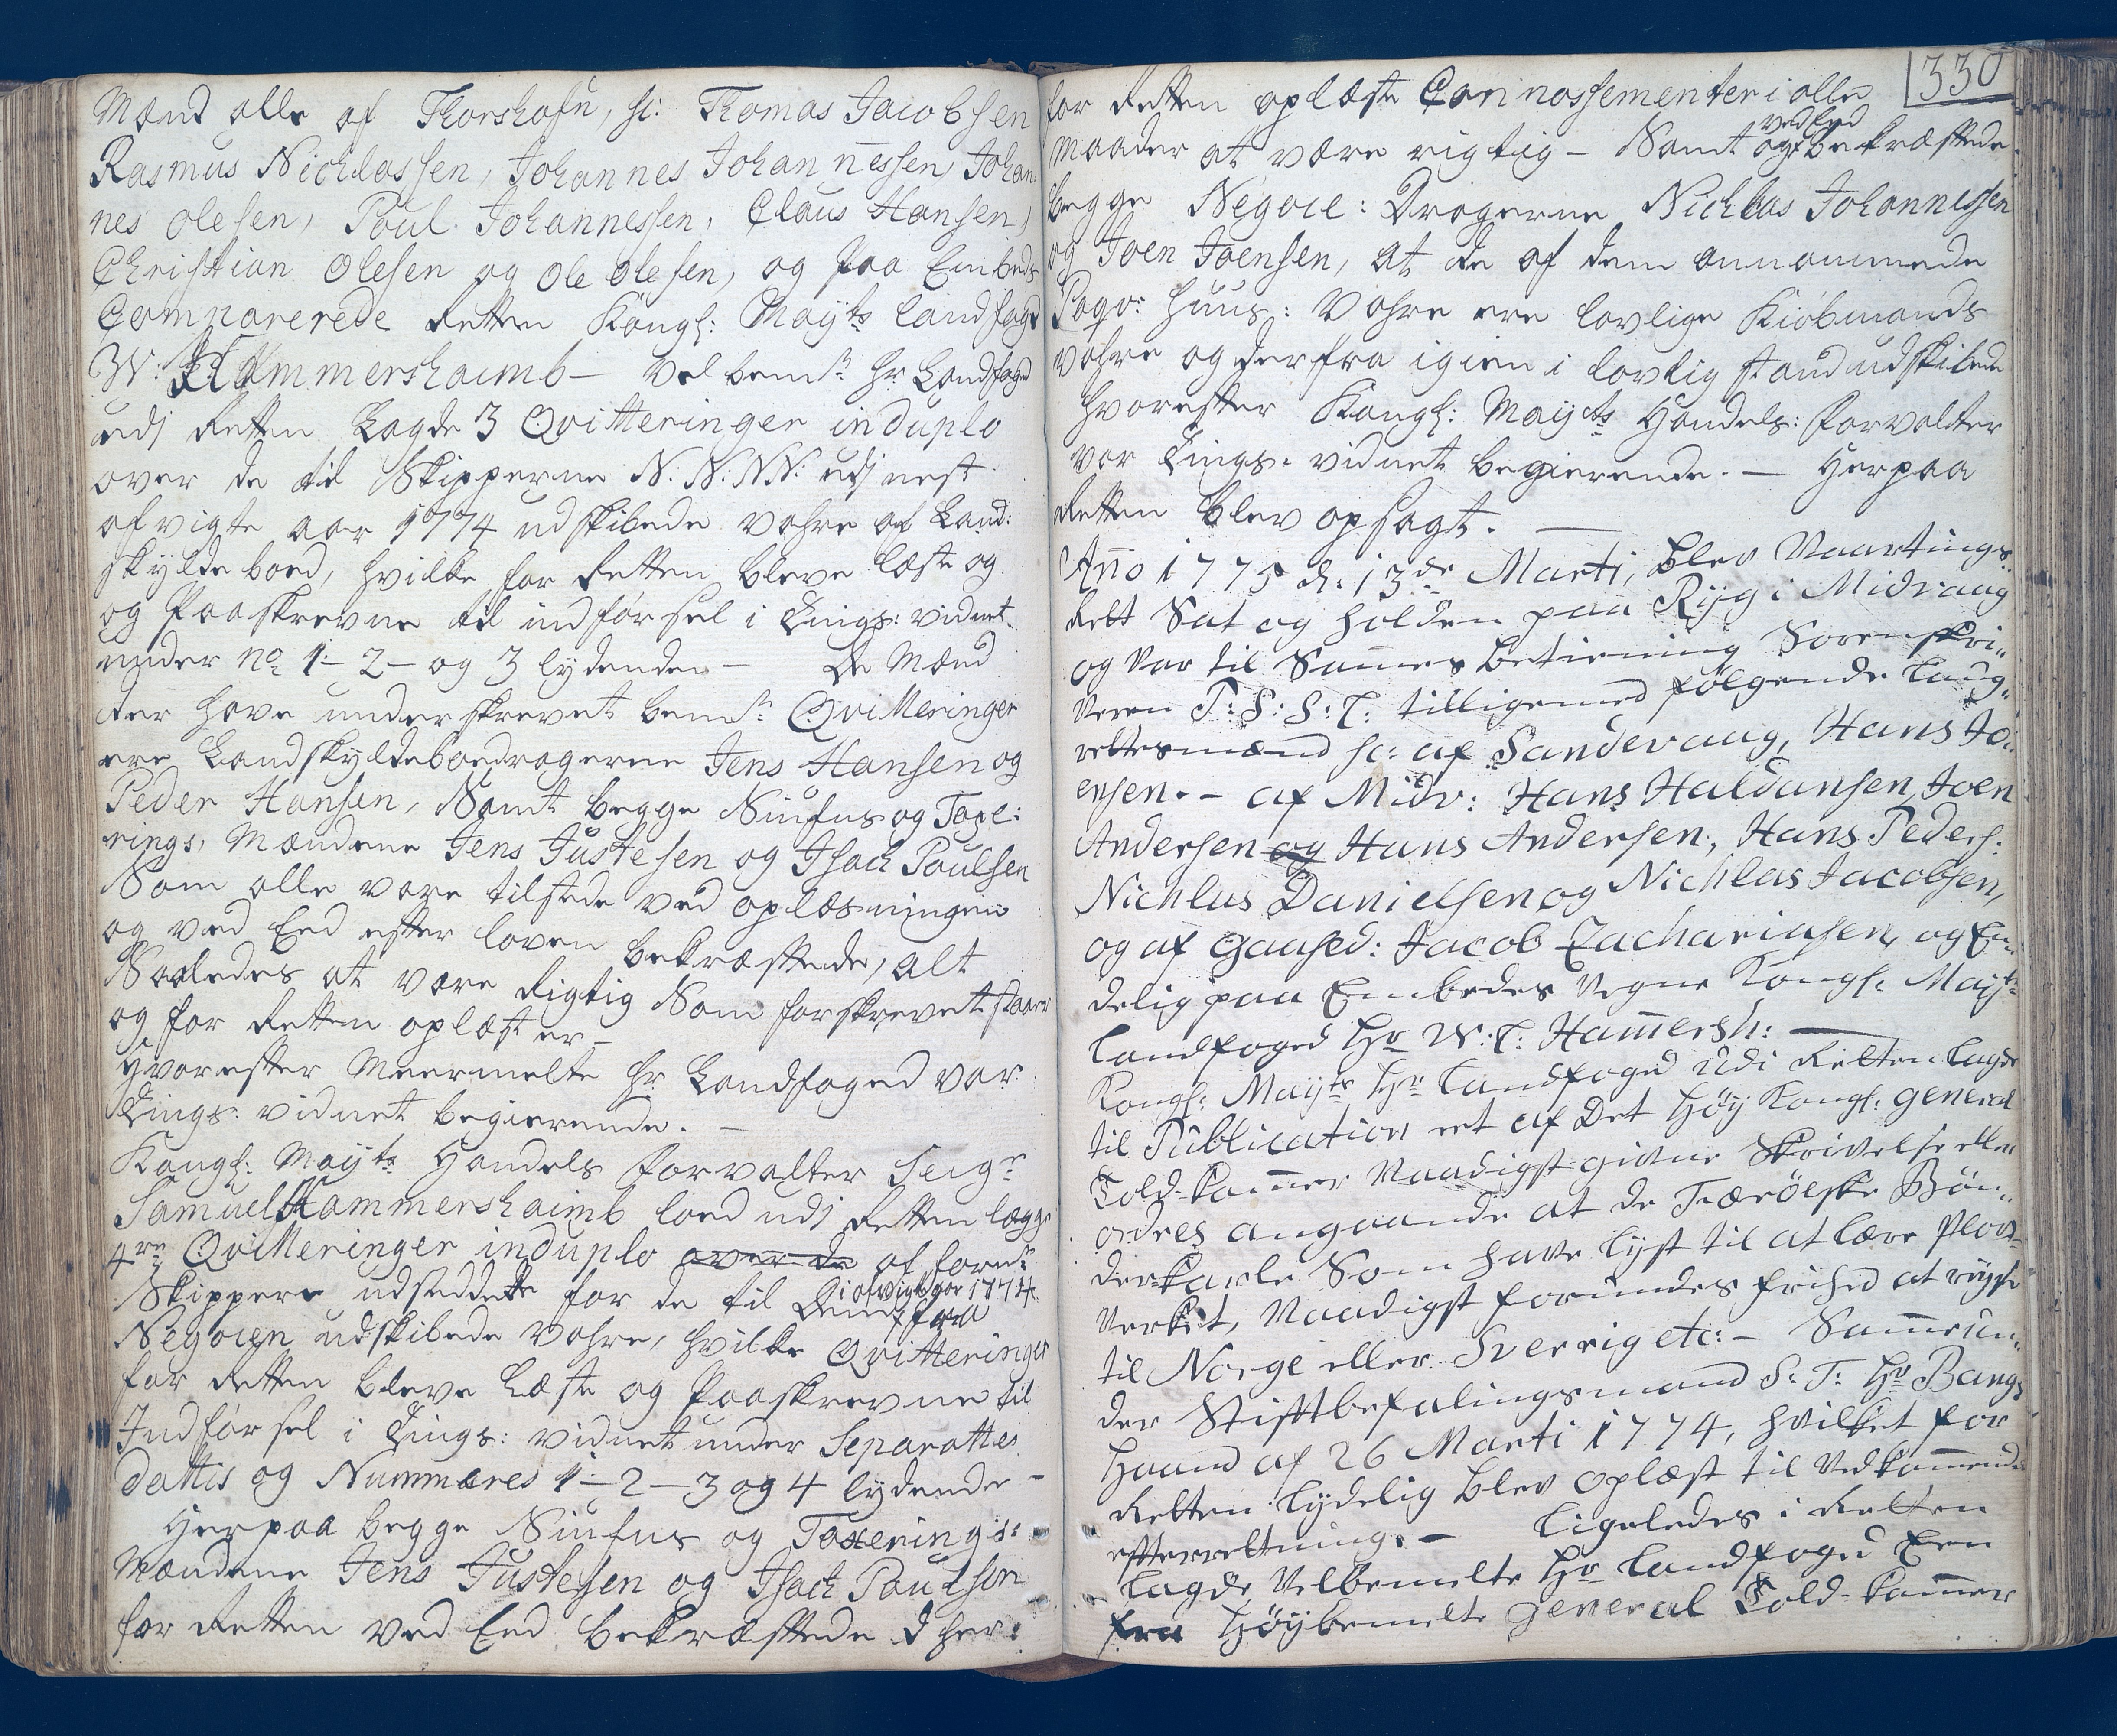 Mænd alle af Thorshafn, sc: Thomas Jacobsen
Rasmus Nichlassen, Johannes Johannessen, Johan
nes Olesen, Poul Johannessen, Claus Hansen,
Christian Olesen og Ole Olesen, og paa Embeds
Comparerede Retten Kongl: Mayts Landfoged
W: Hammershaimb – Velbemte Hr Landfoged
udj Retten Lagde 3 Qvitteringer induplo
over de til Skipperne N: N: NN: udj nest
afvigte aar 1774 udskibede vahre af Land:
skyldeboed, hvilke for Retten bleve læste og
og Paaskrevne til indførsel i Tings: vidnet
under No 1 – 2 – og 3 lydende – De Mænd
der have underskrevet bemte Qvitteringer
ere Landskyldeboedragerne Jens Hansen og
Peder Hansen, Samt begge Niufns og Taxe:
rings, Mændene Jens Justesen og Isach Poulsen
Som alle vare tilstede ved oplæsningen
og ved Eed efter loven bekræftede, alt
Saaledes at være Rigtig Som forskrevet staaer
og for Retten oplæst er –
Hvorefter Meermelte Hr Landfoged var
Tings: vidnet begierende. –
Kongl: Mayts Handels Forvalter Seigr
Samuel Hammershaimb loed udj Retten lægge
4re Qvitteringer induplo over de af forne
Skippere udstedde for de til Dem i afvigte aar 1774 fra
Negocien udskibede vahre, hvilke Qvitteringer
for Retten bleve Læste og Paaskrevne til
Indførsel i Tings: vidnet under Separattes
dattis og Nummeres 1 – 2 – 3 og 4 lydende –
Herpaa begge Niufns og Taxerings:
Mændene Jens Justesen og Isach Poulsen
for Retten ved Eed bekræftede d her:
330
for Retten oplæste Connossementer i alle
maader at være rigtig – Samt ved Eed og bekræftede
begge Negoce: Dragerne Nichlas Johannessen
og Joen Joensen, at de af dem annammede
Pagv: huus: Vahre ere lovlige Kiøbmands
vahre og derfra igien i lovlig stand udskibede
hvorefter Kongl: Mayts Handels: Forvalter
var Tings: vidnet begierende. – Herpaa
Retten blev opsagt. –
Anno 1775 d: 13de Marti, blev Vaartings
Rett Sat og holden paa Ryg i Midvaag
og var til Sammes betiening Sorenskri,,
veren P: S: S: T: tilligemed følgende Laug,,
rettesmænd sc: af Sandevaag, Hans Jo:
ensen. – af Midv: Hans Haldansen, Joen
Andersen og Hans Andersen, Hans Peders.
Nichlas Danielsen og Nichlas Jacobsen,
og af Gaased: Jacob Zachariasen, og En:
delig paa Embedes Vegne Kongl: Mayts
Landfoged Hr W: C: Hammersh: –
Kongl: Mayts Hr Landfoged Udi Retten Lagde
til Publication et af Det Høy Kongl: General
Told-Kammer Naadigst givne Skrivelse eller
ordres angaaende at de Færöeske Bön,,
derkarle Som have Lyst til at lære Plov-
Verket, Naadigst forundes frihed at reyse
til Norge eller Sverrig etc: – Samme un,,
der Stiftbefalingsmand S: T: Hr Bangs
Haand af 26 Marti 1774, hvilket for
Retten lydelig blev oplæst til Vedkommendes
efterretning. – Ligeledes i Retten
Lagde Velbemelte Hr Landfoged Een
fra Høybemelte General Told-Kammer